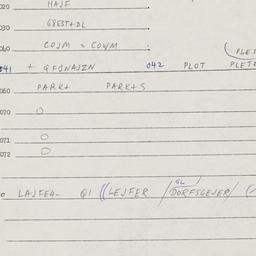 020 HAJF
030 G8EST+DL
040 COJM = COWM
041 + GFJNAJZN 042 PLOT PLETE
060 PARK+ PARK+S
070 O
071 O
072 O
LAJFE4- Q1 ((LEJFER / DORFSGEJER/